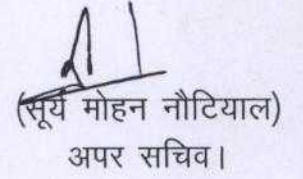 (सूर्य मोहन नौटियाल)
अपर सचिव।